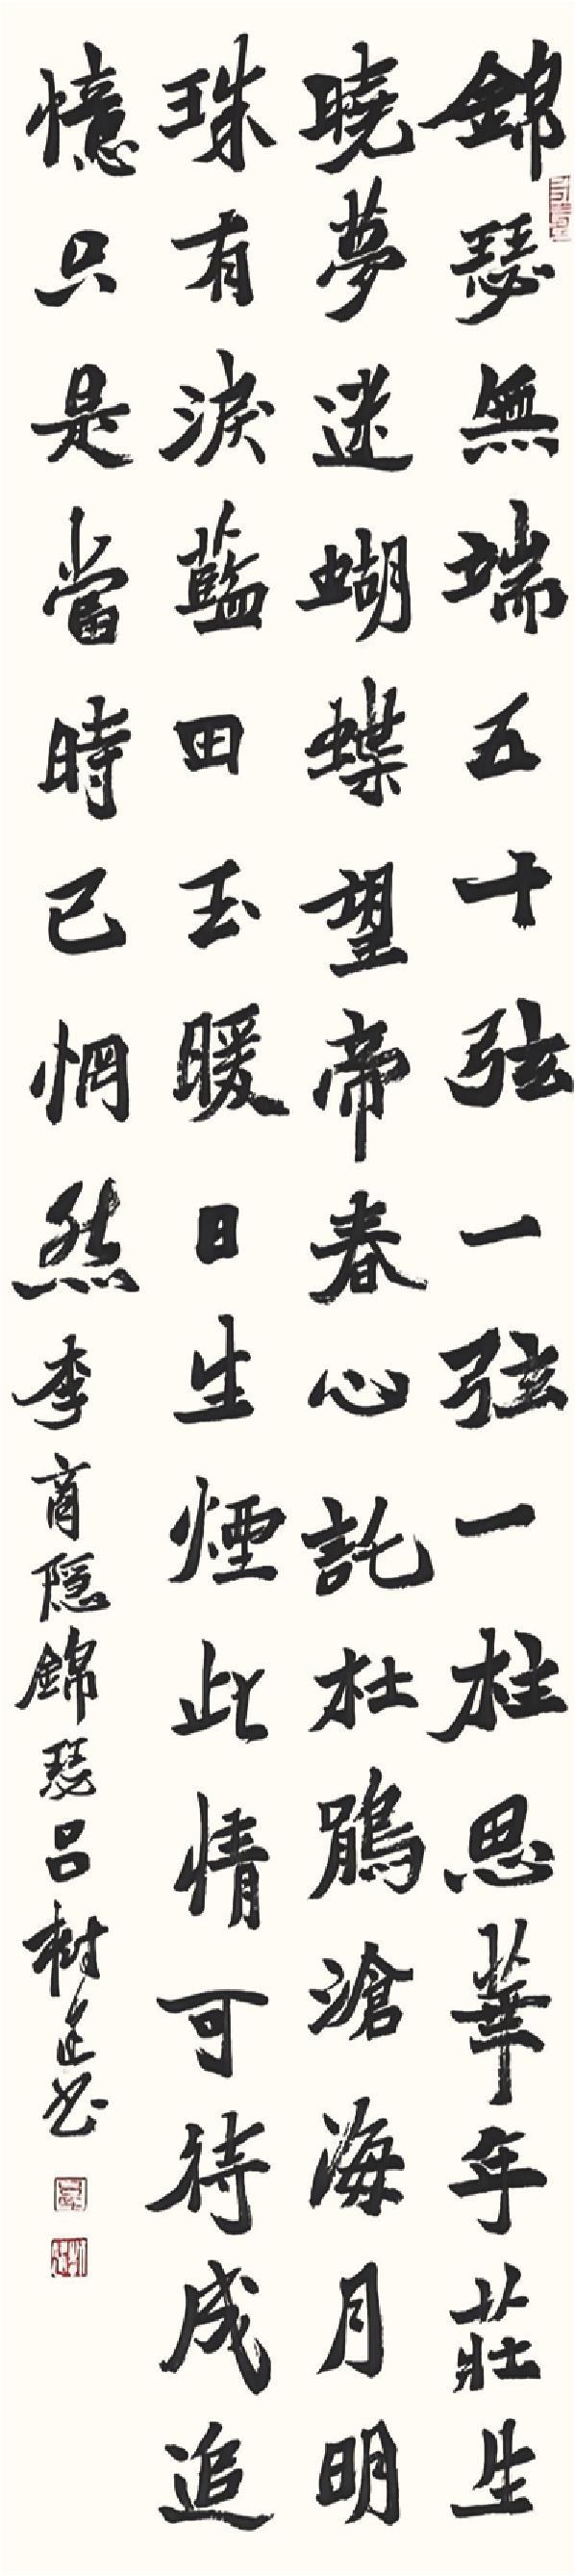 錦瑟無端五十弦一弦一柱思華年莊生
曉夢迷蝴蝶望帝春心託杜鵑滄海月明
珠有淚藍田玉暖日生煙此情可待成追
憶只是當時已惘然李商隱錦瑟呂樹书